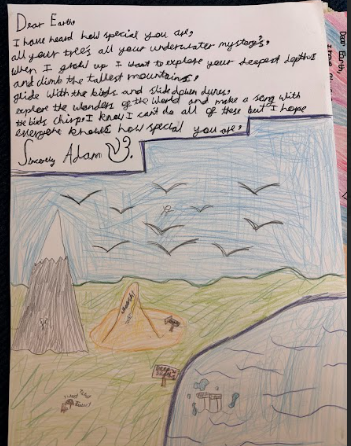 Dear Earth
I have heard how special you are,
all your trees, all your underwater mystorys,
when I grow up I want to explore your deepest depths
and climb the tallest mountains,
glide with the birds and slide down dunes,
explore the wonders of the world and make a song with
the birds chirps, I know I can't do all of these but I hope
everyone knows how special you are,
Sincerly Adam
Dear Earth,